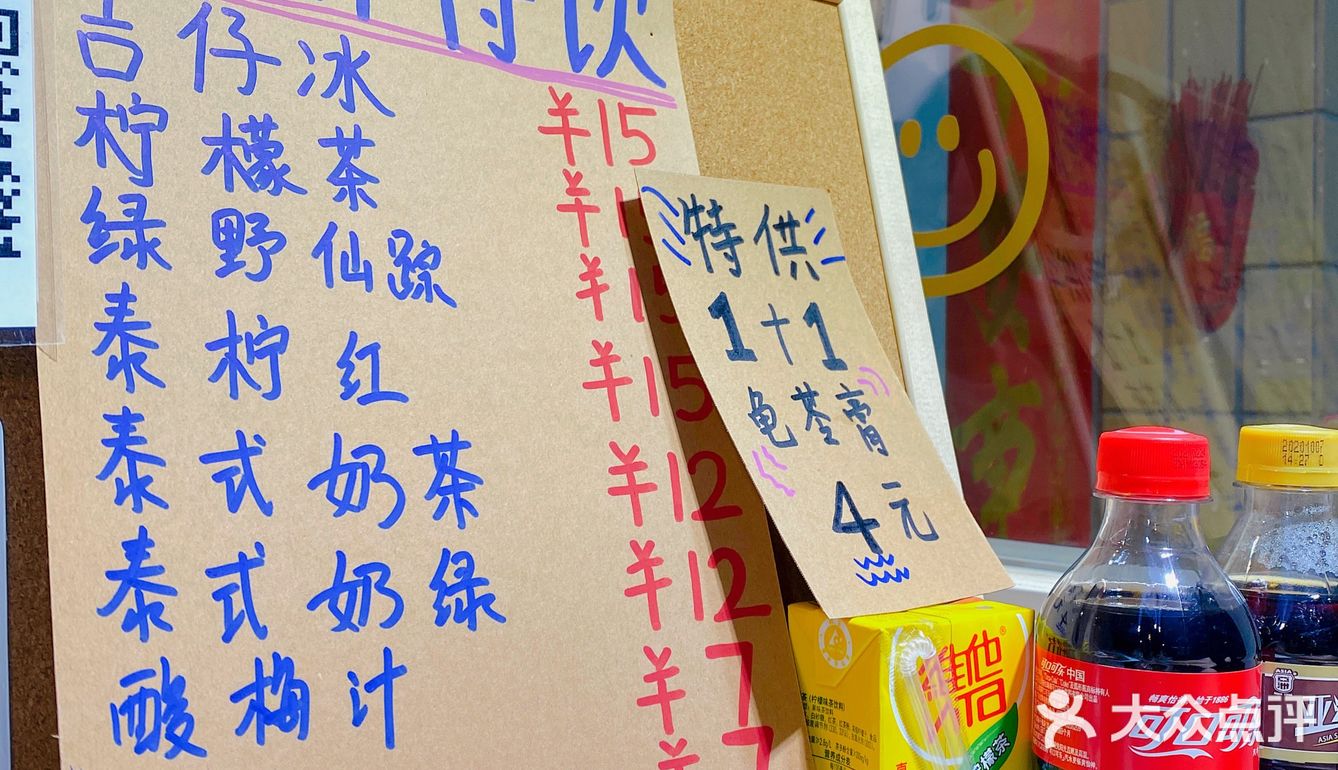 特饮
吉仔冰 ¥15
柠檬茶 ¥1
绿野仙踪 ¥15
泰柠红 ¥15
泰式奶茶 ¥12
泰式奶绿 ¥12
酸梅汁 ¥7
¥7
特供
1+1
龟苓膏
4元
维他
柠檬茶
20201007
14:27
中国
可口可乐
ASIA
大众点评